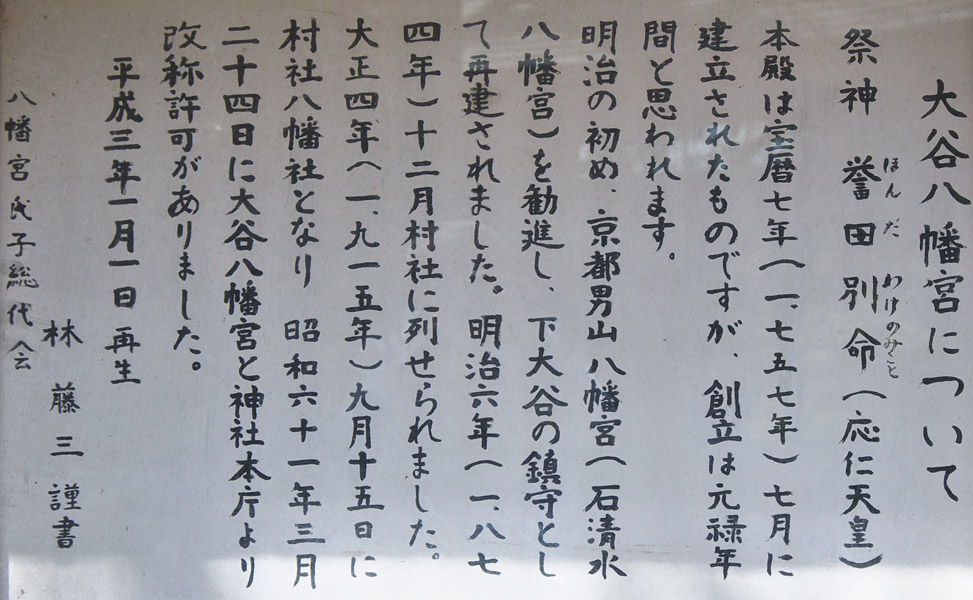 大谷八幡宮について
祭神 誉田別命(応仁天皇)
ほんだ わけのみこと
本殿は宝暦七年(一、七五七年)七月に
建立されたものですが、創立は元禄年
間と思われます。
明治の初め、京都男山八幡宮(石清水
八幡宮)を勧進し、下大谷の鎮守とし
て再建されました。明治六年(一、八七
四年)十二月村社に列せられました。
大正四年(一、九一五年)九月十五日に
村社八幡社となり 昭和六十一年三月
二十四日に大谷八幡宮と神社本庁より
改称許可がありました。
平成三年一月一日 再生
林 藤三 謹書
八幡宮氏子総代会